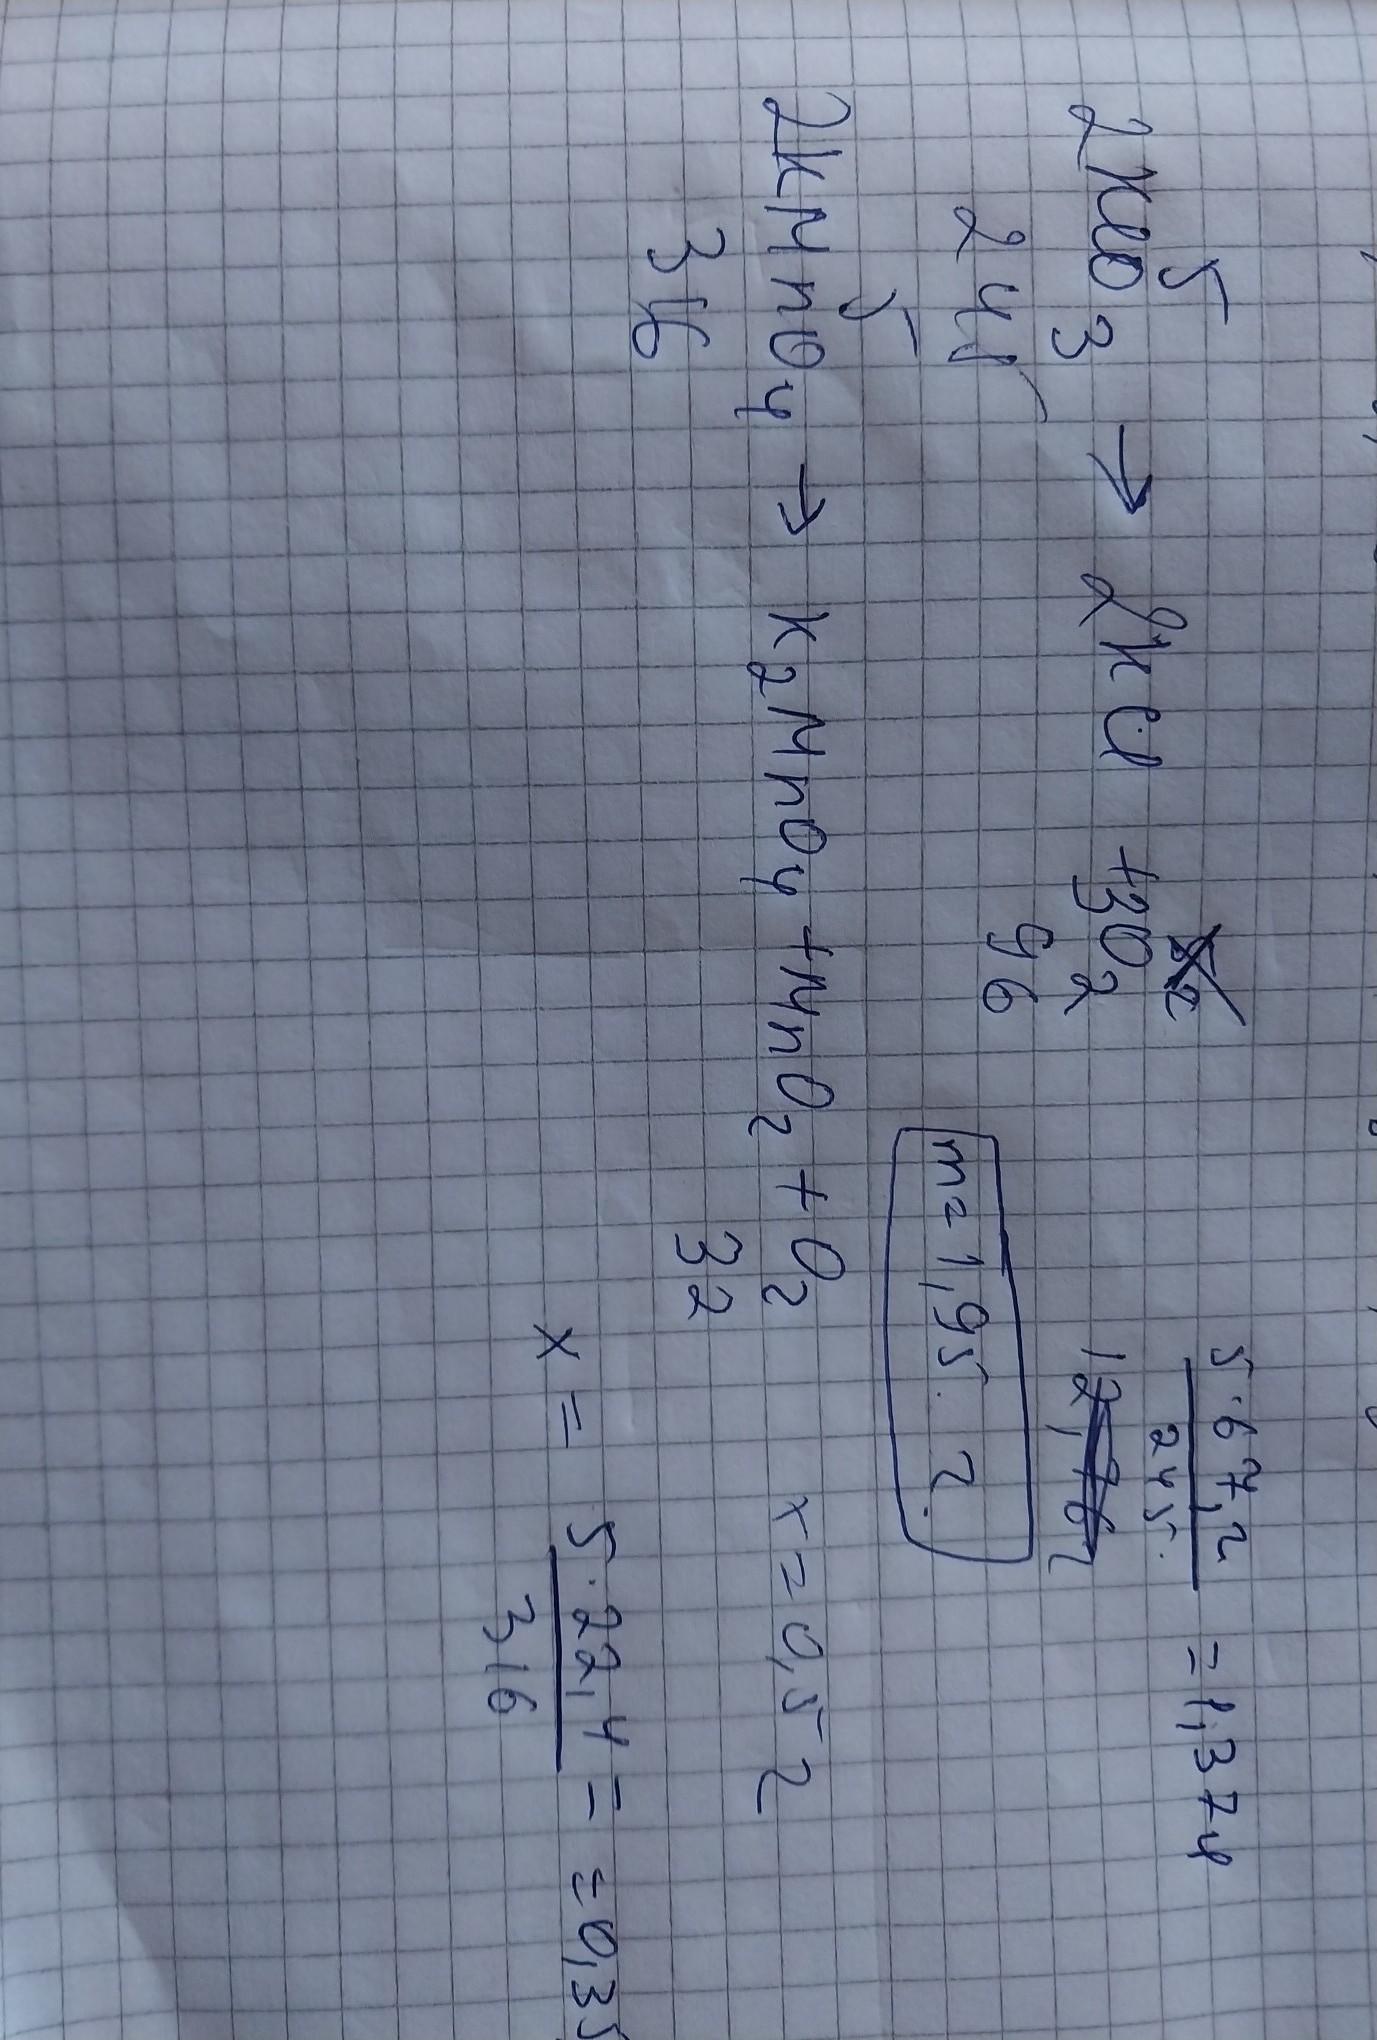 5
2KClO3 → 2KCl + 3O2
245
96
5·67,2
245.
= 1,374
m = 1,95. г.
5
2KMnO4 → K2MnO4 + MnO2 + O2
316
32
x = 0,5 г
x = 5·22,4 = = 0,35
316